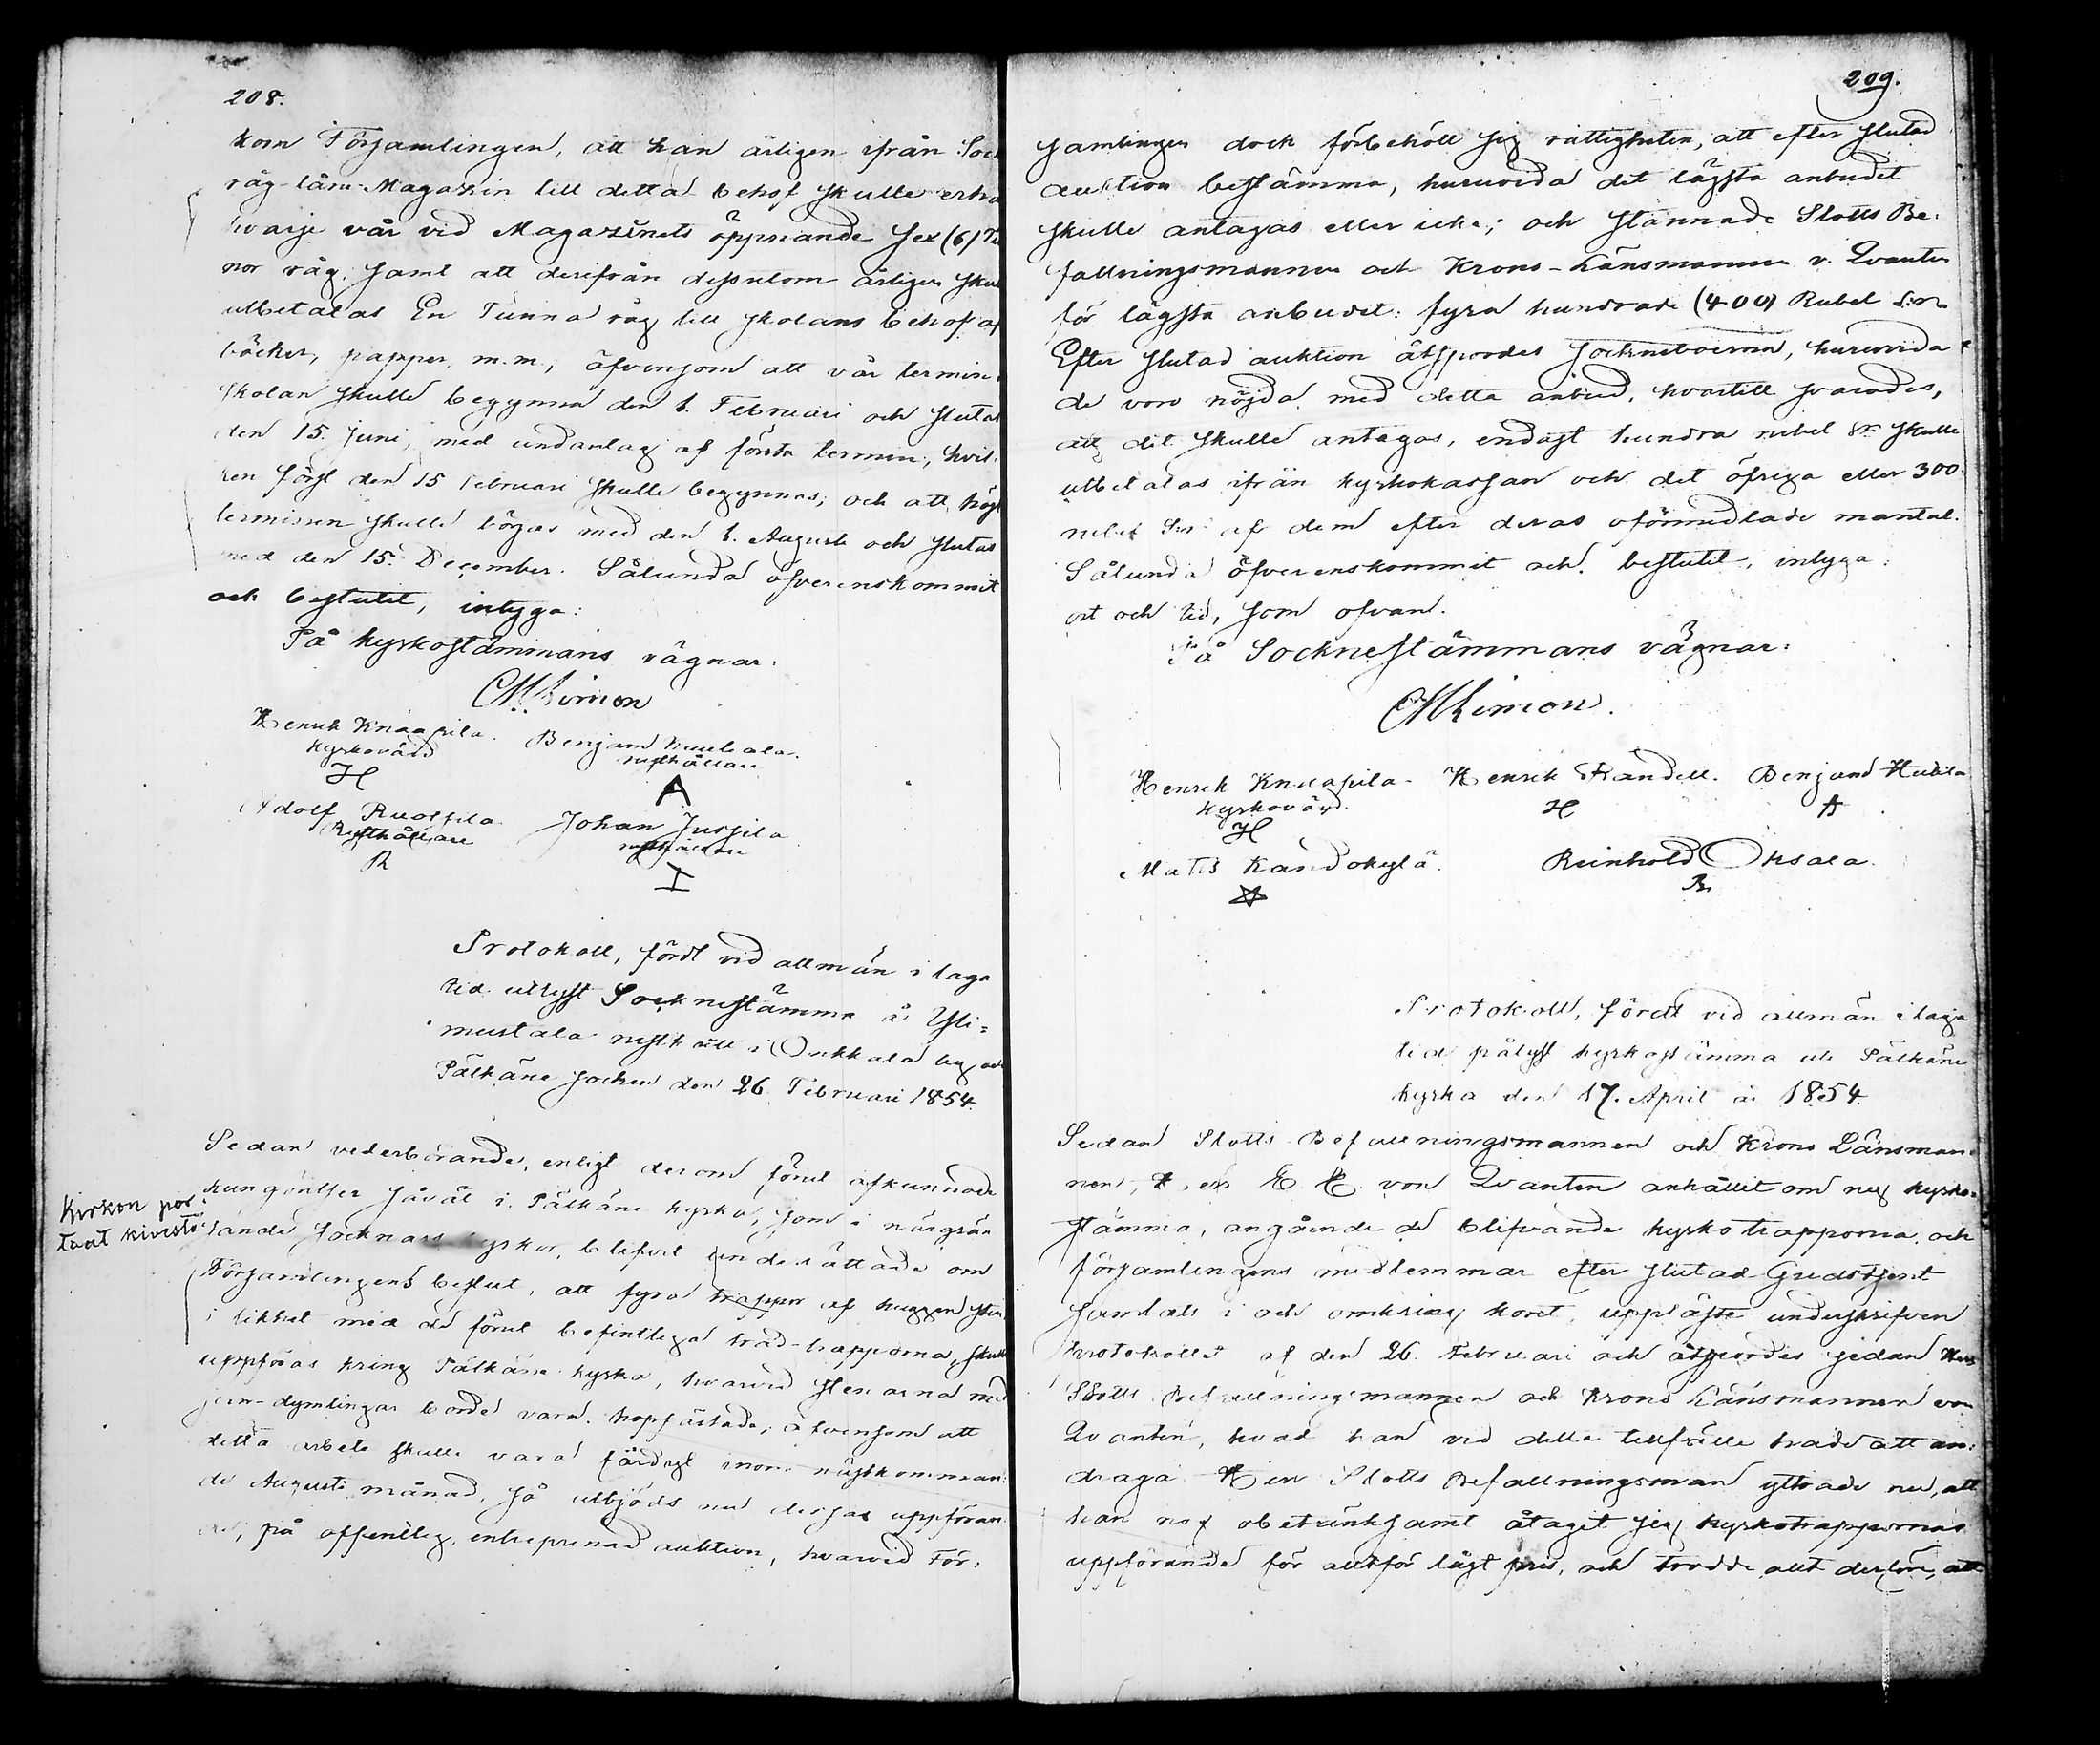 208.
kom Församlingen, att han årligen ifrån Sock
råg-låne-Magazin till detta behof skulle erhå
hvarje vår vid Magazinets öppnande sex (6) Tu
nor råg, samt att derifrån dessutom årligen skul
utbetalas En Tunna råg till skolans behof af
böcker, papper, m.m., äfvensom att vår termin
skolan skulle begynna den 1. Februari och slutas
den 15. Juni, med undantag af första termin, hvil-
ken först den 15 Februari skulle begynnas; och att höst
terminen skulle börjas med den 1. Augusti och slutas
med den 15. December. Sålunda öfverenskommit
och beslutit, intyga:
På kyrkostämmans vägnar:
CMLimon
Henrik Knaapila. Benjam Huubala.
kyrkovärd rusthållare
H A
Adolf Ruolfila Johan Jussila
Rusthållare rusthållare
R I
Protokoll, fördt vid allmän i laga
tid utlyst Socknestämma å Yli=
mustala rusthåll i Onkkala by och
Pälkäne socken den 26 Februari 1854.
Sedan vederbörande, enligt derom förut afkunnade
kungörelser såväl i Pälkäne kyrka, som i närgrän
Kirkon por
taat kivestä
sande socknars kyrkor, blifvit underrättade om
Församlingens beslut, att fyra trappor af huggen sten
i likhet med de förut befintliga träd-trapporna, skulle
uppföras kring Pälkäne kyrka, hvarvid stenarna med
jern-dymlingar borde vara hopfästade; äfvensom att
detta arbete skulle vara färdigt inom nästkomman-
de Augusti månad, så utbjöds nu dessas uppföran
de, på offentlig entreprenad auktion, hvarvid För-
209.
samlingen dock förbehöll sig rättigheten, att efter slutad
auktion bestämma, huruvida det lägsta anbudet
skulle antagas eller icke; och stannade Slotts Be-
fallningsmannen och Krono-Länsmannen v. Qvanten
för lägsta anbudet: fyra hundrade (400) Rubel S:r
Efter slutad auktion åtspordes sockneboerna, huruvida
de voro nöjda med detta anbud, hvartill svarades,
att det skulle antagas, endast hundra rubel Sr skulle
utbetalas ifrån kyrkokassan och det öfriga eller 300
rubel S:r af dem efter deras oförmedlade mantal.
Sålunda öfverenskommit och beslutit, intyga:
ort och tid, som ofvan.
På Socknestämmans vägnar:
CMLimon.
Henrik Knaapila. Henrik Frandell. Benjam Hubila
kyrkovärd. H A
H
Matts Kandokylä. Reinhold Oksala.
☆ R.
Protokoll, fördt vid allmän i laga
tid pålyst kyrkostämma uti Pälkäne
kyrka den 17. April år 1854.
Sedan Slotts Befallningsmannen och Krono Länsman-
nen, Herr E E von Qvanten anhållit om ny kyrko-
stämma, angående de blifvande kyrkotrapporna, och
församlingens medlemmar efter slutad Gudstjenst
samlats i och omkring koret, uppläste underskrifven
protokollet af den 26. Februari och åtspordes sedan Herr
Slotts Befallningsmannen och Krono Länsmannen von
Qvanten, hvad han vid detta tillfälle hade att an-
draga. Herr Slotts Befallningsman yttrade nu, att
han nog obetänksamt åtagit sig kyrkotrappornas
uppförande för alltför lågt pris, och trodde allt derföre, att